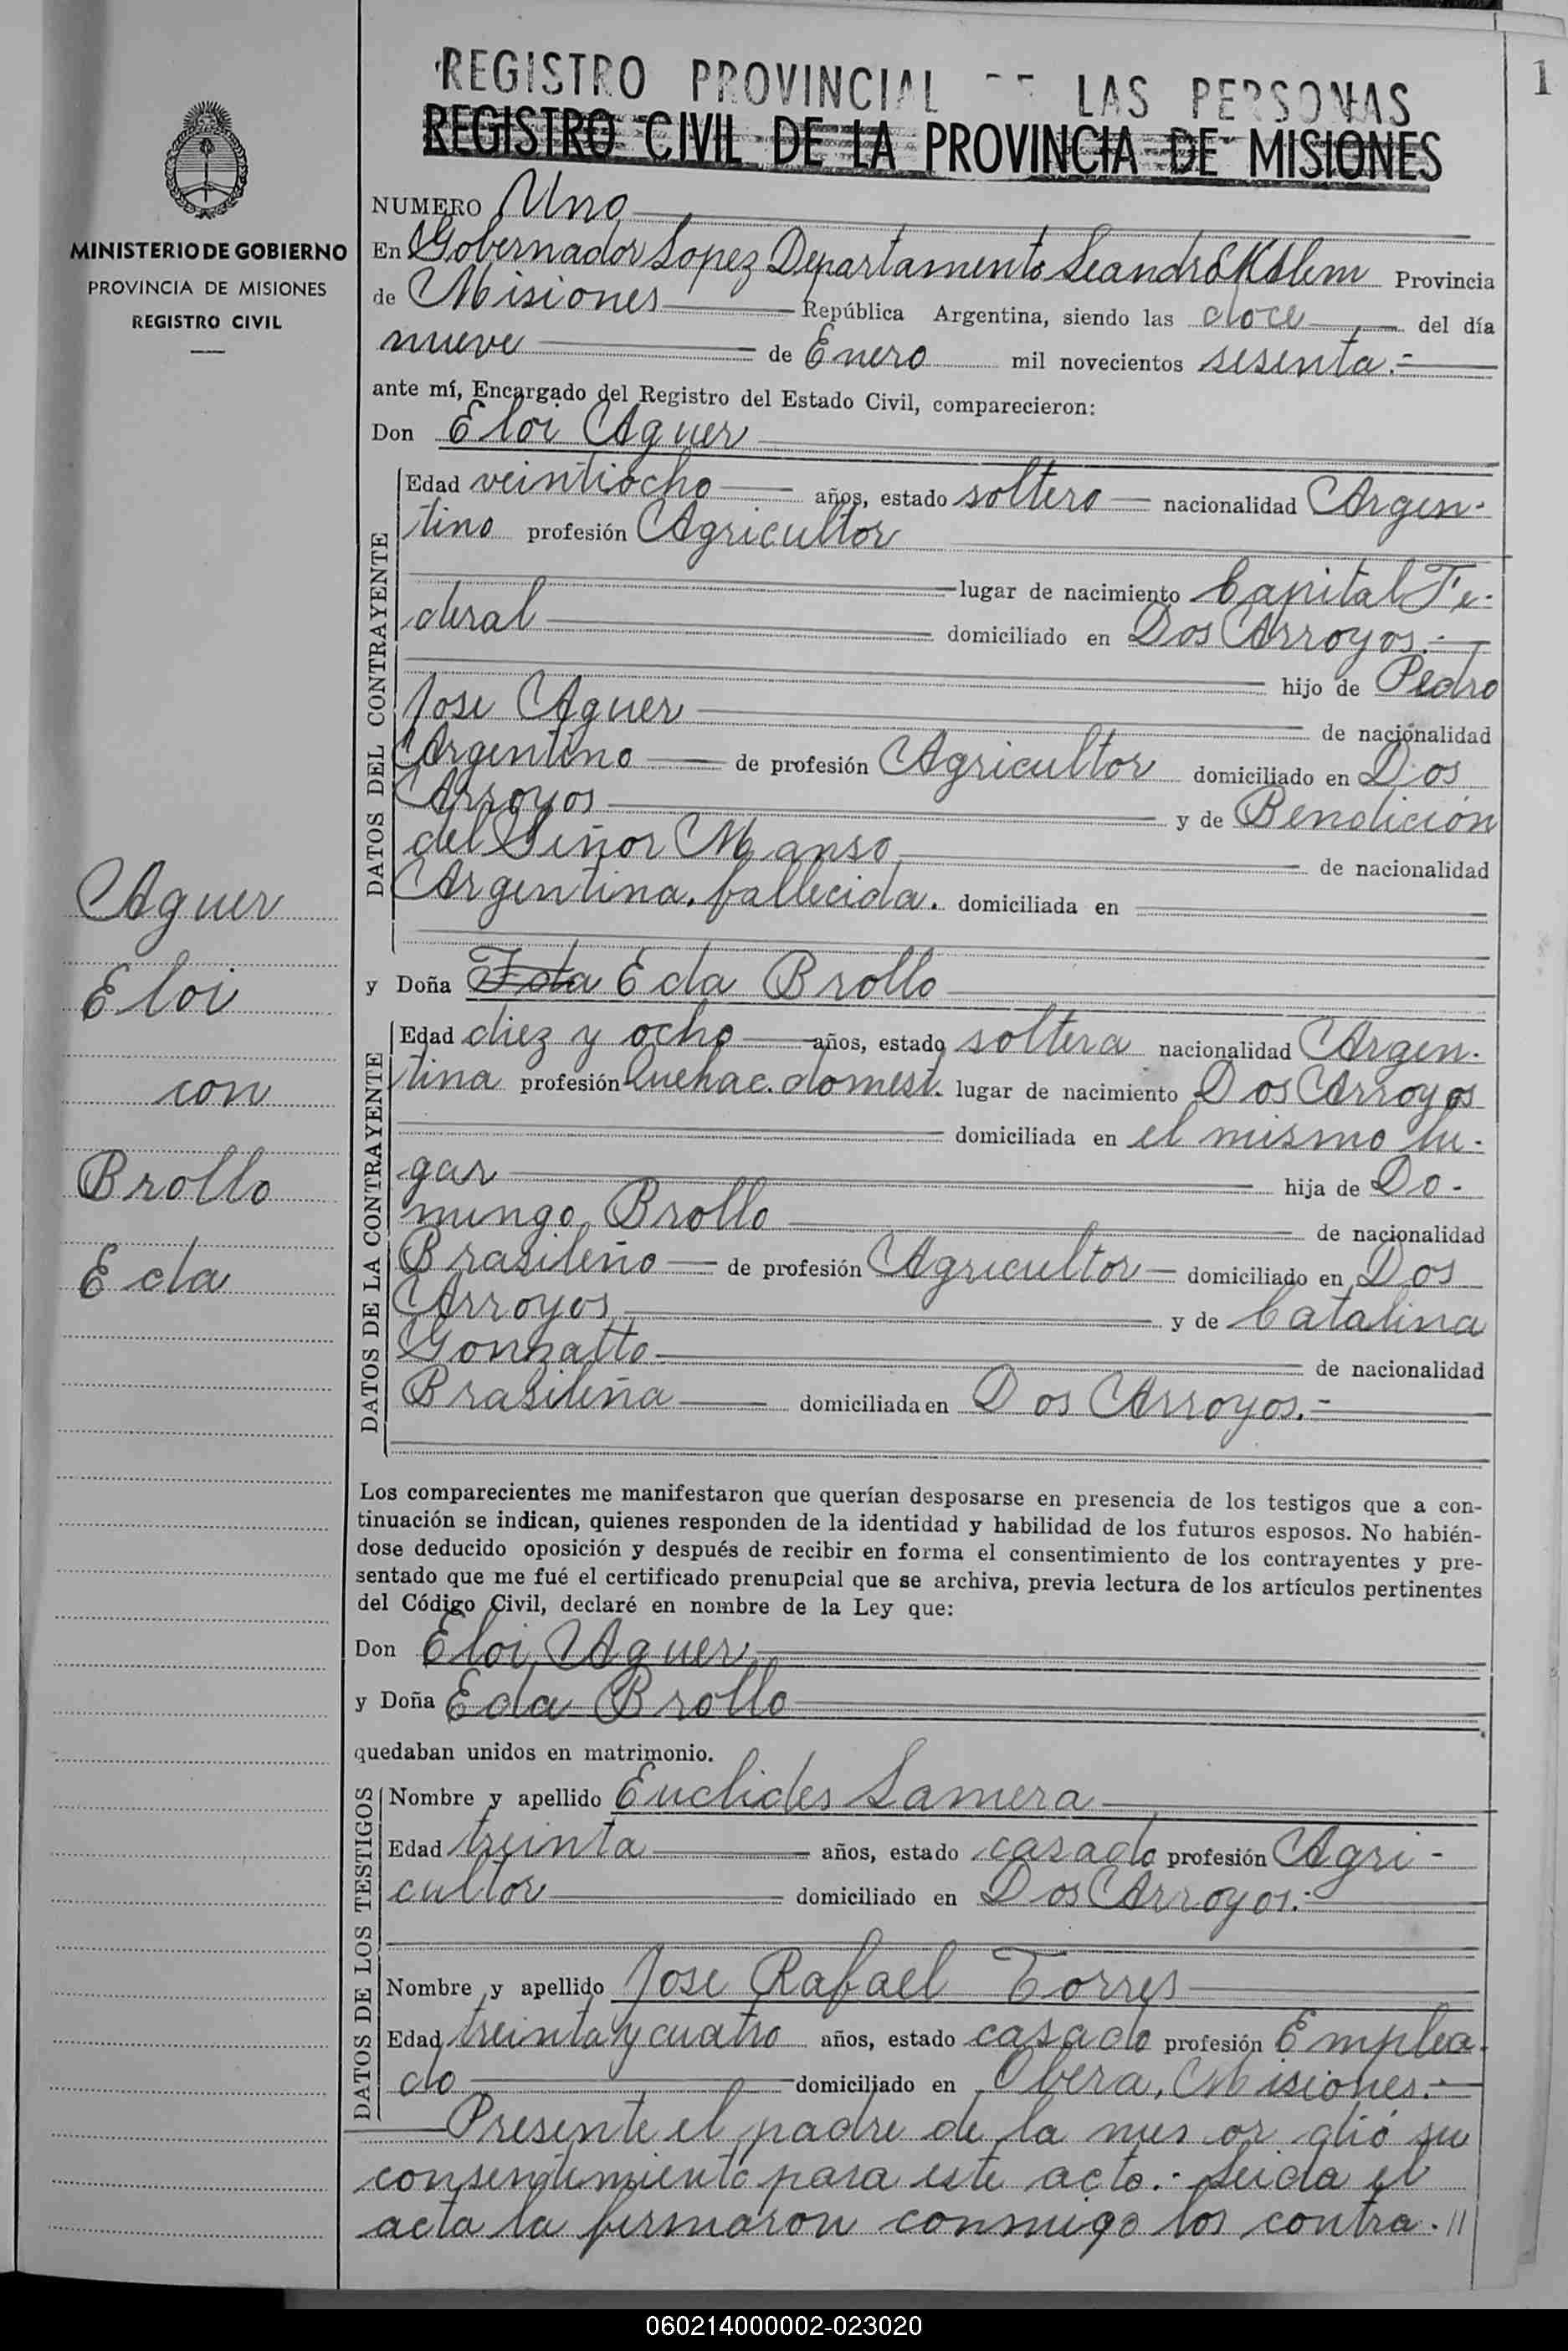 REGISTRO PROVINCIAL DE LAS PERSONAS
REGISTRO CIVIL DE LA PROVINCIA DE MISIONES
1
MINISTERIO DE GOBIERNO
PROVINCIA DE MISIONES
REGISTRO CIVIL
NUMERO Uno
En Gobernador Lopez Departamento Leandro N Alem Provincia
de Misiones República Argentina, siendo las doce del día
nueve de Enero mil novecientos sesenta.=
ante mí, Encargado del Registro del Estado Civil, comparecieron:
Don Eloi Aguer
DATOS DEL CONTRAYENTE
Edad veintiocho años, estado soltero nacionalidad Argen-
tino profesión Agricultor
lugar de nacimiento Capital Fe-
deral domiciliado en Dos Arroyos.-
hijo de Pedro
Jose Aguer de nacionalidad
Argentino de profesión Agricultor domiciliado en Dos
Arroyos y de Bendición
del Señor Manso de nacionalidad
Argentina, fallecida. domiciliada en
y Doña Ida Eda Brollo
DATOS DE LA CONTRAYENTE
Edad diez y ocho años, estado soltera nacionalidad Argen-
tina profesión Quehac. domest. lugar de nacimiento Dos Arroyos
domiciliada en el mismo lu-
gar hija de Do-
mingo Brollo de nacionalidad
Brasileño de profesión Agricultor domiciliado en Dos
Arroyos y de Catalina
Gonzatto de nacionalidad
Brasileña domiciliada en Dos Arroyos.-
Aguer
Eloi
con
Brollo
Eda
Los comparecientes me manifestaron que querían desposarse en presencia de los testigos que a con-
tinuación se indican, quienes responden de la identidad y habilidad de los futuros esposos. No habién-
dose deducido oposición y después de recibir en forma el consentimiento de los contrayentes y pre-
sentado que me fué el certificado prenupcial que se archiva, previa lectura de los artículos pertinentes
del Código Civil, declaré en nombre de la Ley que:
Don Eloi Aguer
y Doña Eda Brollo
quedaban unidos en matrimonio.
DATOS DE LOS TESTIGOS
Nombre y apellido Euclides Lamera
Edad treinta años, estado casado profesión Agri-
cultor domiciliado en Dos Arroyos.-
Nombre y apellido Jose Rafael Torres
Edad treinta y cuatro años, estado casado profesión Emplea-
do domiciliado en Obera, Misiones.-
Presente el padre de la menor dió su
consentimiento para este acto.- Leida el
acta la firmaron conmigo los contra-//
060214000002-023020